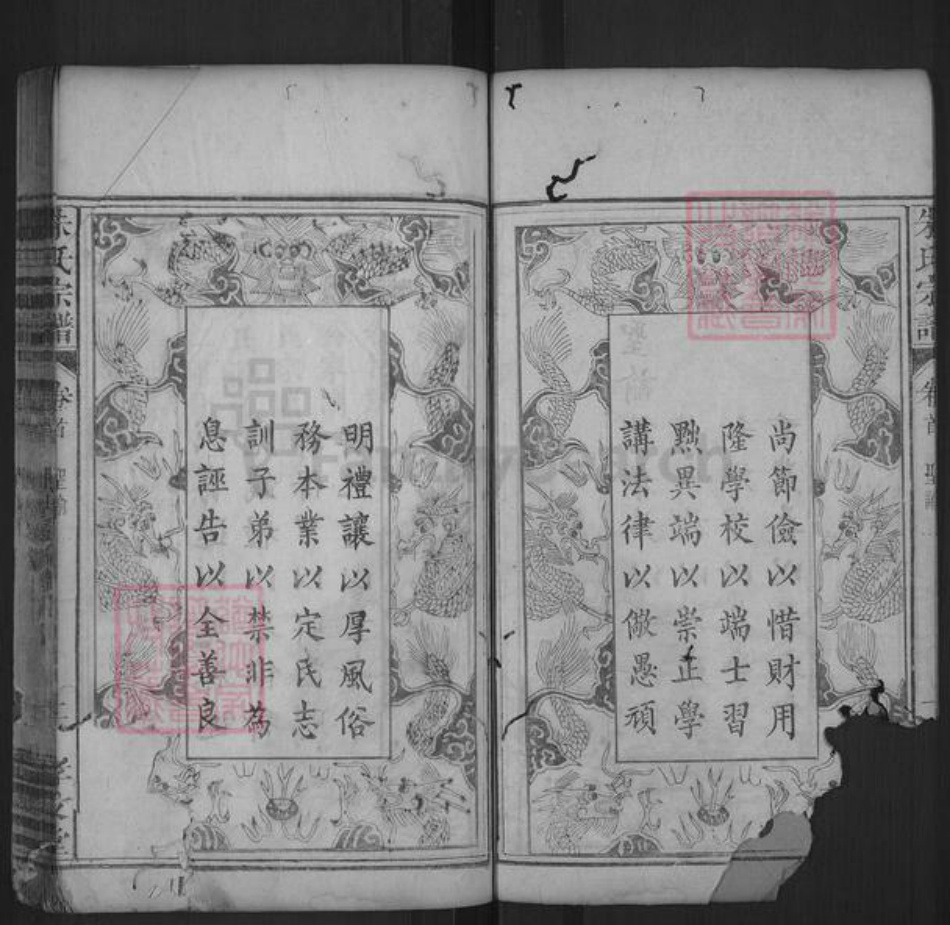 朱氏宗譜
卷首
聖諭
尚節儉以惜財用
隆學校以端士習
黜異端以崇正學
講法律以儆愚頑
明禮讓以厚風俗
務本業以定民志
訓子弟以禁非為
息誣告以全善良
朱氏宗譜
卷首
聖諭